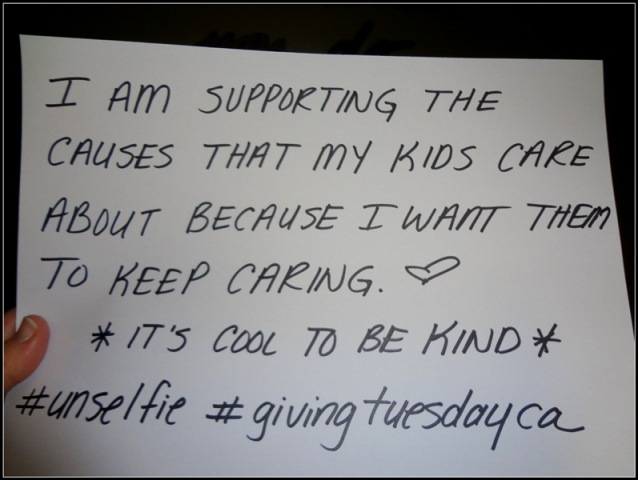 I AM SUPPORTING THE
CAUSES THAT MY KIDS CARE
ABOUT BECAUSE I WANT THEM
TO KEEP CARING. ♡
* IT'S COOL TO BE KIND *
#unselfie #givingtuesdayca